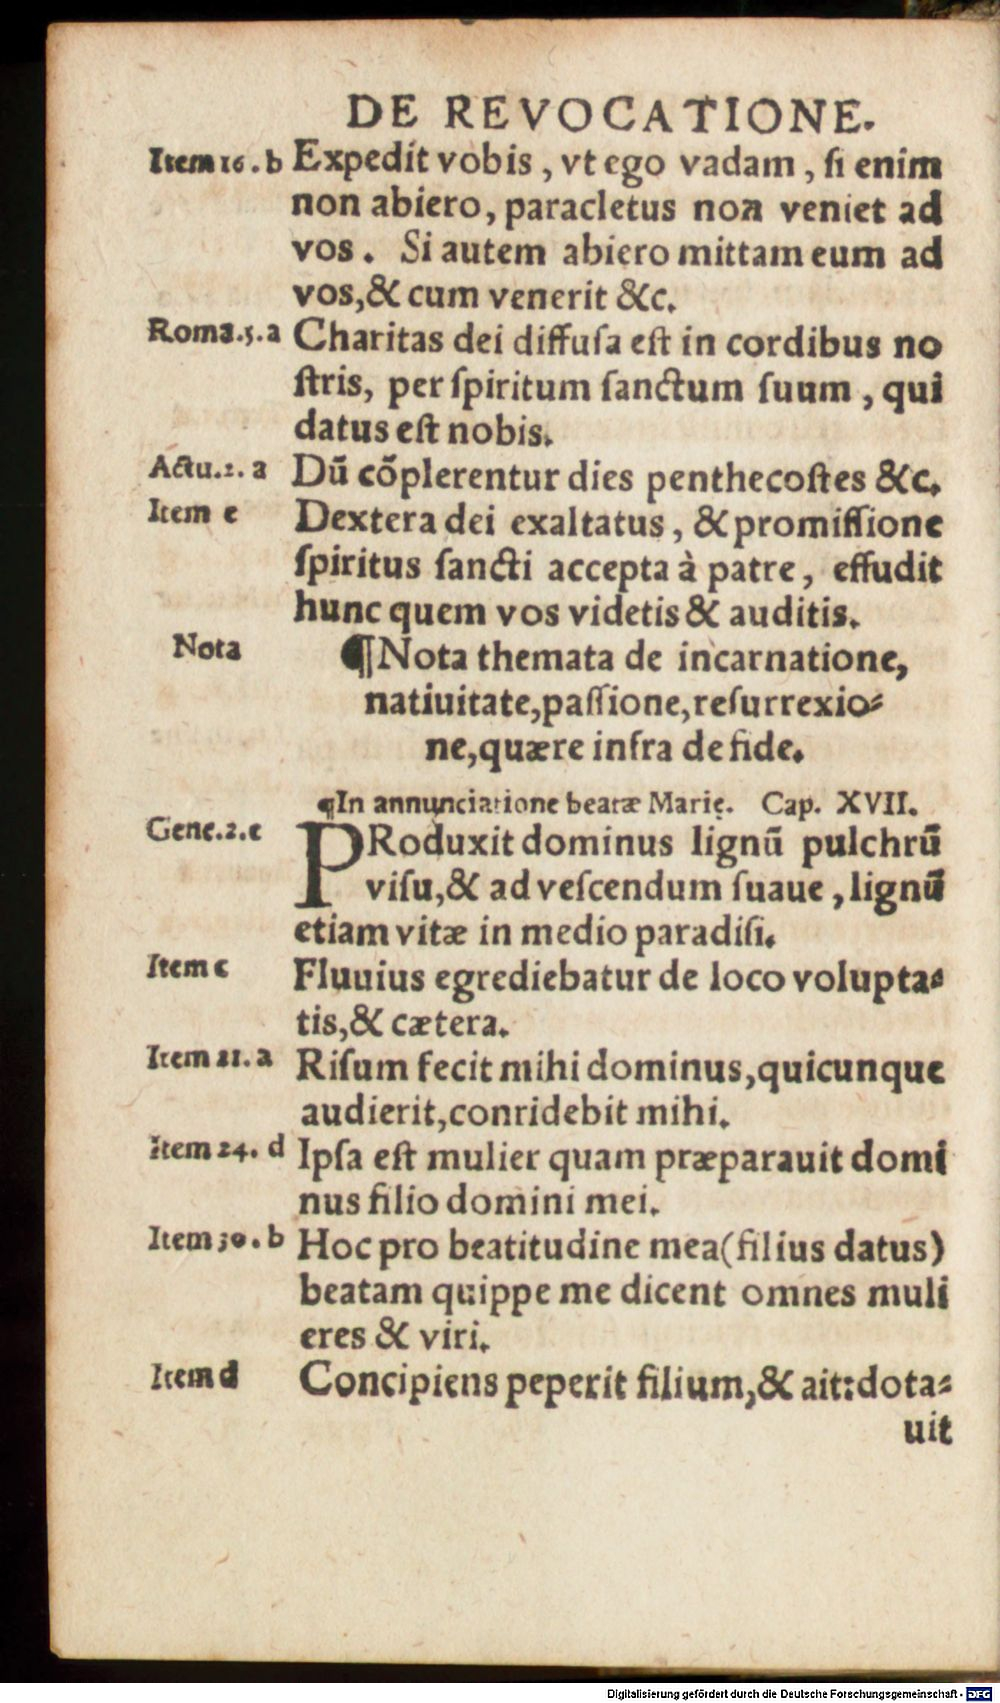 DE REVOCATIONE.
Item 16. b Expedit vobis, vt ego vadam, ſi enim
non abiero, paracletus non veniet ad
vos. Si autem abiero mittam eum ad
vos,& cum venerit &c.
Roma.5.a Charitas dei diffuſa eſt in cordibus no
ſtris, per ſpiritum ſanctum ſuum, qui
datus eſt nobis.
Actu.2. a Dū cõplerentur dies penthecoſtes &c.
Item e Dextera dei exaltatus, & promiſſione
ſpiritus ſancti accepta à patre, effudit
hunc quem vos videtis & auditis.
Nota ¶Nota themata de incarnatione,
natiuitate,paſſione,reſurrexio⸗
ne,quære infra de fide.
¶In annunciatione beatæ Marię. Cap. XVII.
Gene.2.c PRoduxit dominus lignū pulchrū
viſu,& ad veſcendum ſuaue, lignū
etiam vitæ in medio paradiſi.
Item c Fluuius egrediebatur de loco volupta⸗
tis,& cætera.
Item 21. a Riſum fecit mihi dominus,quicunque
audierit,conridebit mihi.
Item 24. d Ipſa eſt mulier quam præparauit domi
nus filio domini mei.
Item 30. b Hoc pro beatitudine mea(filius datus)
beatam quippe me dicent omnes muli
eres & viri.
Item d Concipiens peperit filium,& ait:dota⸗
uit
Digitalisierung gefördert durch die Deutsche Forschungsgemeinschaft - DFG